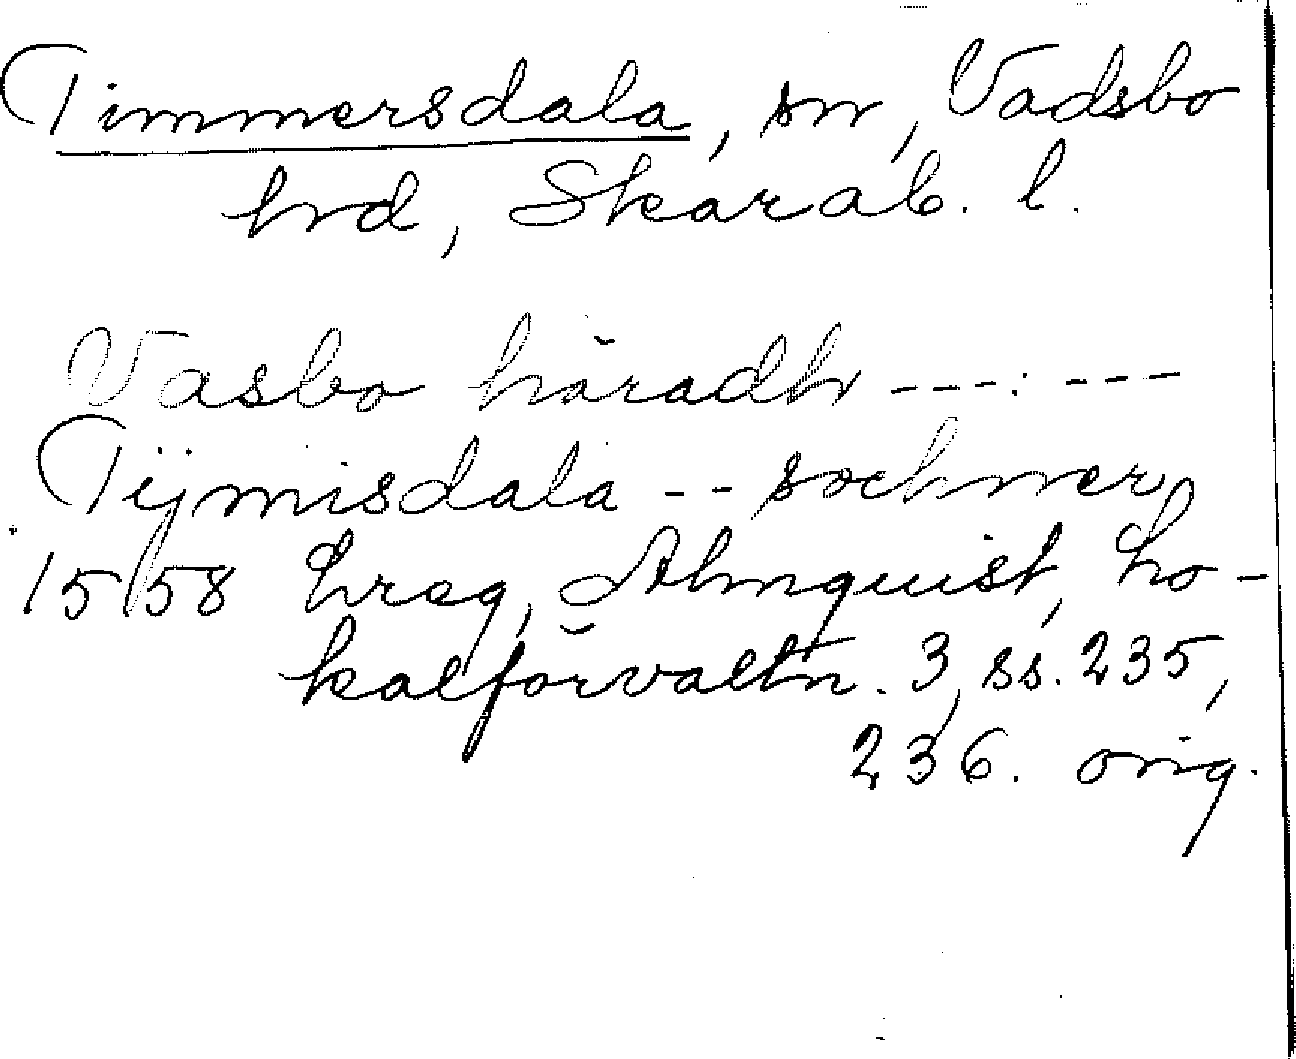 Timmersdala, sn, Vadsbo
hrd, Skarab. l.
Vasbo häradh ---:---
Tijmisdala -- sochner
1558 hreg, Almquist, Lo-
kalförvaltn. 3, ss. 235,
236. orig.